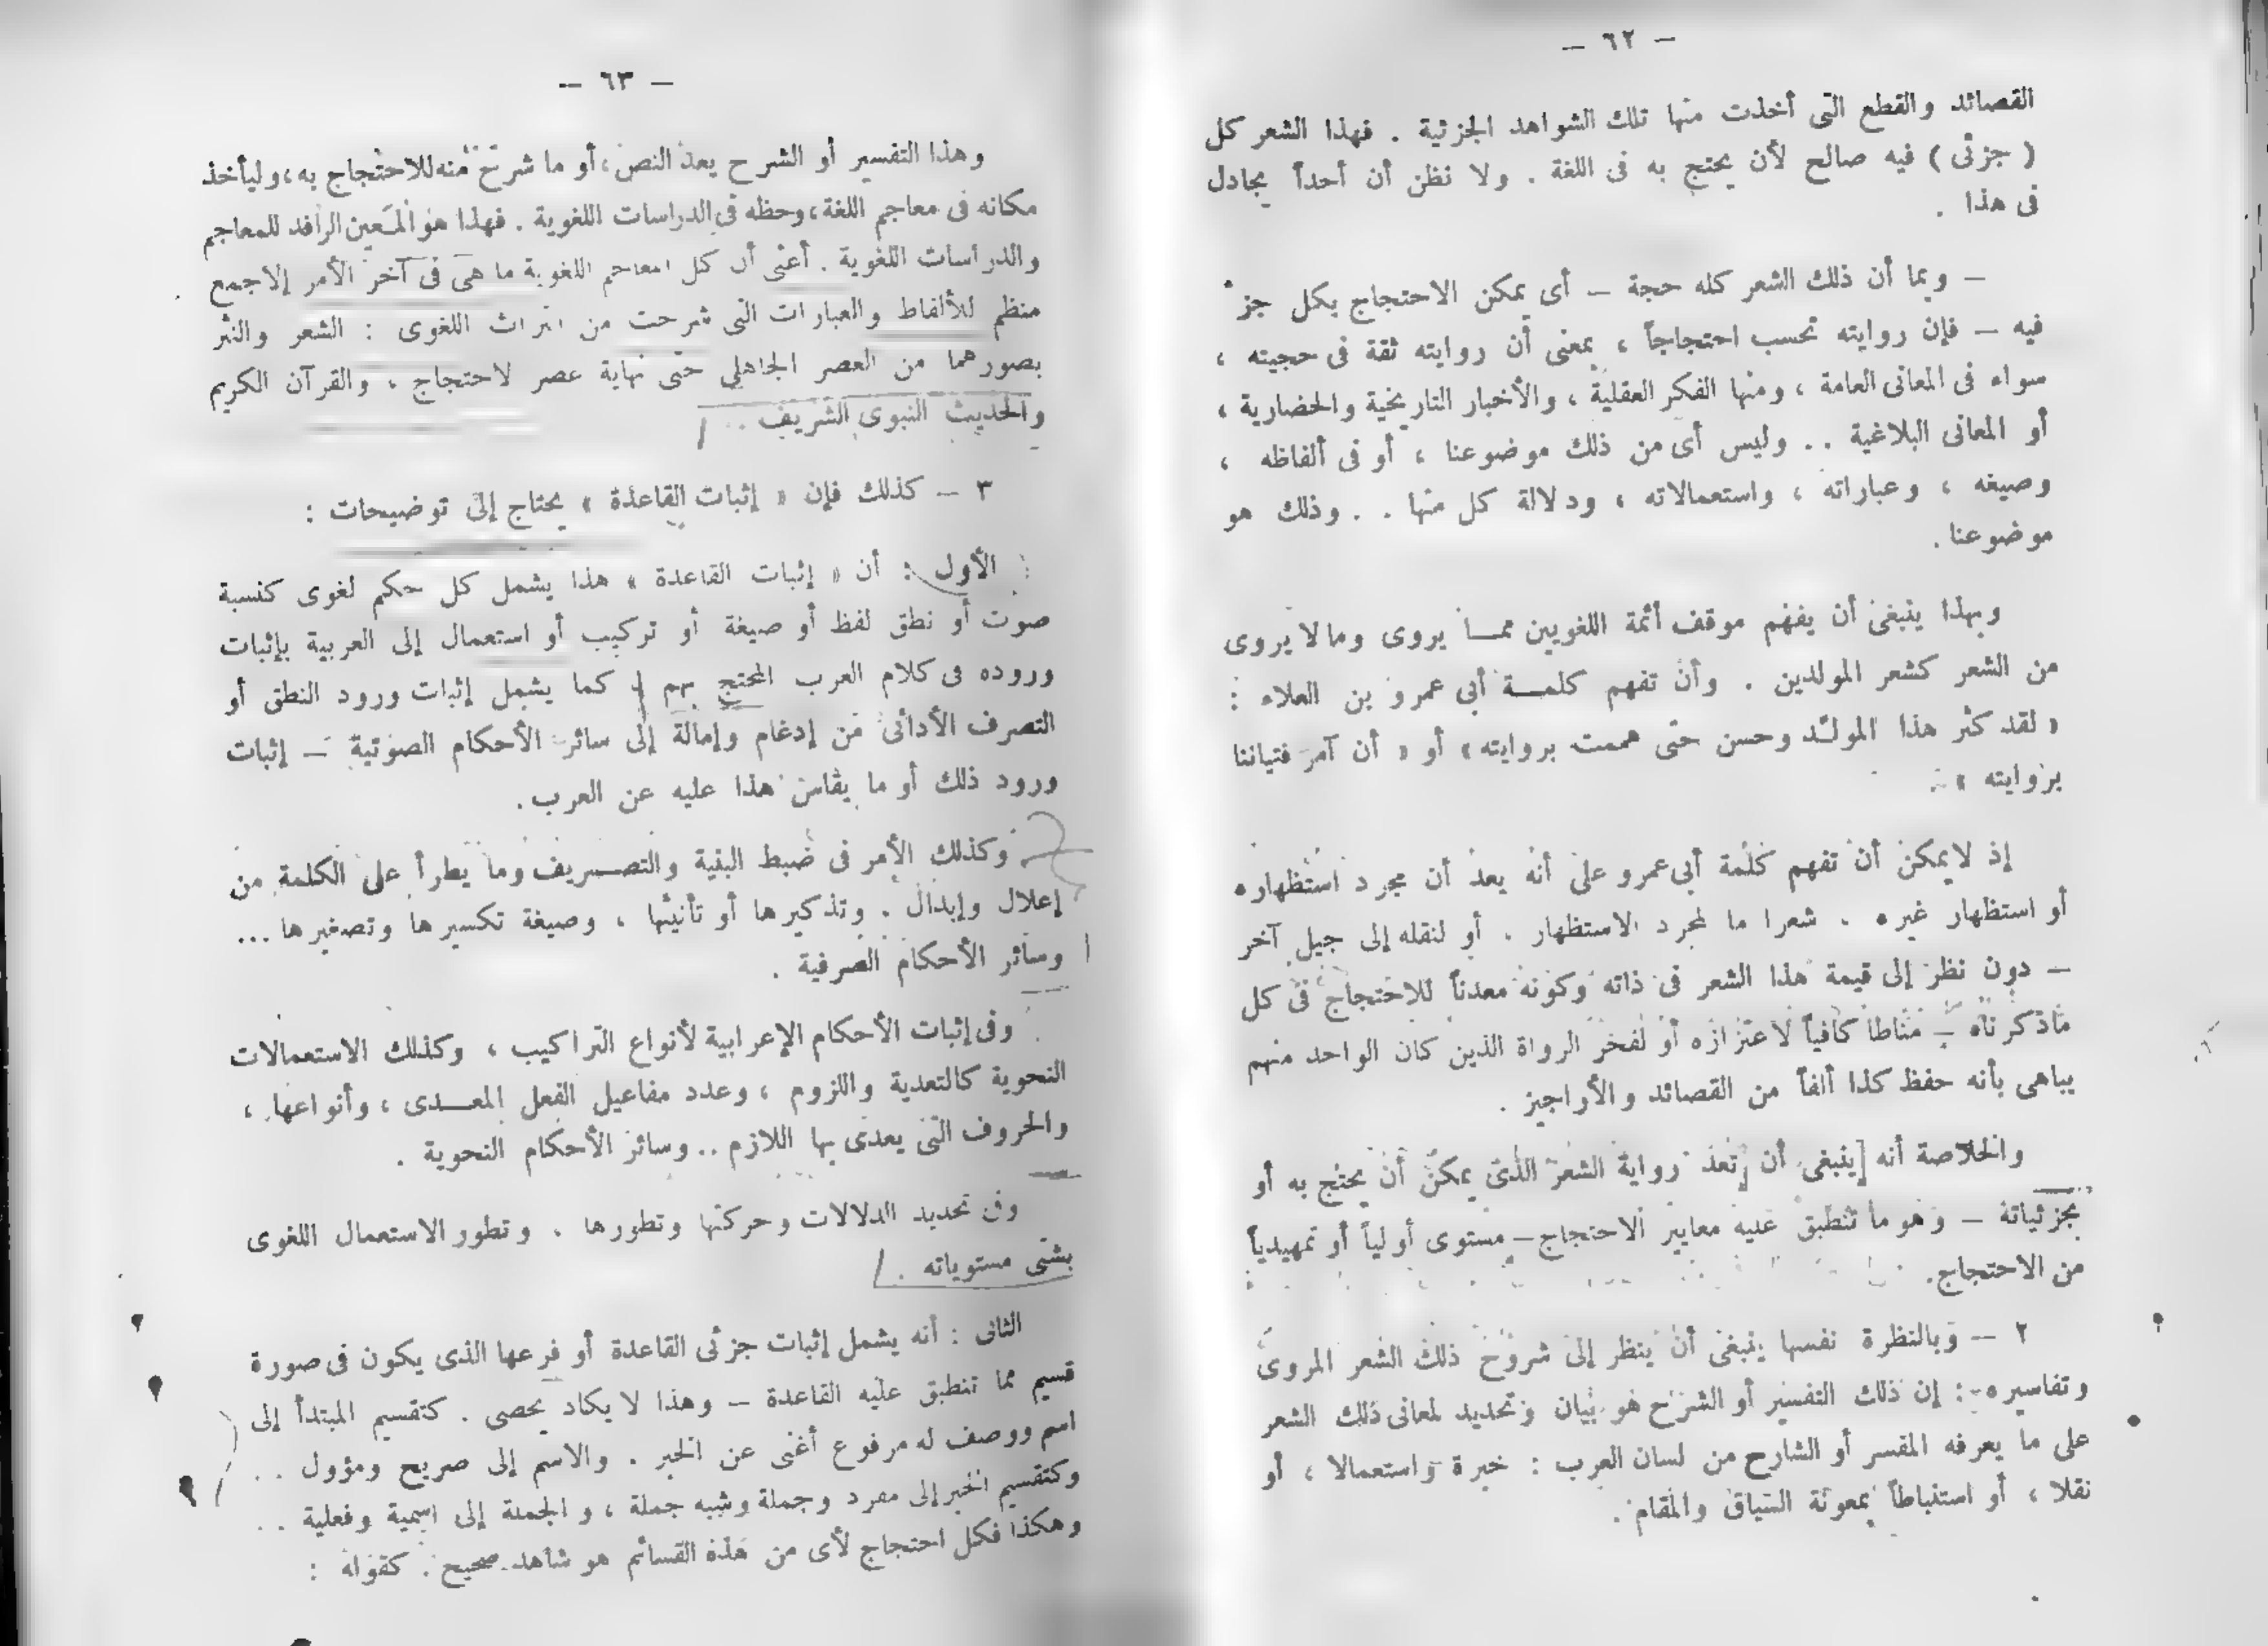 — ٦٢ —
القصائد والقطع التى أخذت منها تلك الشواهد الجزئية . فهذا الشعر كل
( جزئى ) فيه صالح لأن يحتج به فى اللغة . ولا نظن أن أحداً يجادل
فى هذا .
— وبما أن ذلك الشعر كله حجة — أى يمكن الاحتجاج بكل جزء
فيه — فإن روايته تحسب احتجاجاً ، بمعنى أن روايته ثقة فى حجيته ،
سواء فى المعانى العامة ، ومنها الفكر العقلية ، والأخبار التاريخية والحضارية ،
أو المعانى البلاغية .. وليس أى من ذلك موضوعنا ، أو فى ألفاظه ،
وصيغه ، وعباراته ، واستعمالاته ، ودلالة كل منها . . وذلك هو
موضوعنا .
وبهذا ينبغى أن يفهم موقف أئمة اللغويين ممـا يروى وما لا يروى
من الشعر كشعر المولدين . وأن تفهم كلمـة أبى عمرو بن العلاء :
« لقد كثر هذا المولـَّد وحسن حتى هممت بروايته » أو « أن آمر فتياننا
بروايته » .
إذ لا يمكن أن تفهم كلمة أبى عمرو على أنه يعد أن مجرد استظهاره
أو استظهار غيره . شعرا ما لمجرد الاستظهار . أو لنقله إلى جيل آخر
— دون نظر إلى قيمة هذا الشعر فى ذاته وكونه معدناً للاحتجاج فى كل
ماذكرناه — مناطاً كافياً لاعتزازه أو لفخر الرواة الذين كان الواحد منهم
يباهى بأنه حفظ كذا ألفاً من القصائد والأراجيز .
والخلاصة أنه [ينبغى أن تعد رواية الشعر الذى يمكن أن يحتج به أو
بجزئياته — وهو ما تنطبق عليه معايير الاحتجاج — مستوى أولياً أو تمهيدياً
من الاحتجاج.
٢ — وبالنظرة نفسها ينبغى أن ينظر إلى شروح ذلك الشعر المروى
وتفاسيره : إن ذلك التفسير أو الشرح هو بيان وتحديد لمعانى ذلك الشعر
على ما يعرفه المفسر أو الشارح من لسان العرب : خبرة واستعمالا ، أو
نقلا ، أو استنباطاً بمعونة السياق والمقام .
— ٦٣ —
وهذا التفسير أو الشرح يعد النص ، أو ما شرح منه للاحتجاج به ، وليأخذ
مكانه فى معاجم اللغة ، وحظه فى الدراسات اللغوية . فهذا هو المَعين الرافد للمعاجم
والدراسات اللغوية . أعنى أن كل المعاجم اللغوية ما هى فى آخر الأمر إلا جمع
منظم للألفاظ والعبارات التى شرحت من التراث اللغوى : الشعر والنثر
بصورهما من العصر الجاهلي حتى نهاية عصر لاحتجاج ، والقرآن الكريم
والحديث النبوى الشريف ..
٣ — كذلك فإن « إثبات القاعدة » يحتاج إلى توضيحات :
الأول : أن « إثبات القاعدة » هذا يشمل كل حكم لغوى كنسبة
صوت أو نطق لفظ أو صيغة أو تركيب أو استعمال إلى العربية بإثبات
وروده فى كلام العرب المحتج بهم كما يشمل إثبات ورود النطق أو
التصرف الأدائى من إدغام وإمالة إلى سائر الأحكام الصوتية — إثبات
ورود ذلك أو ما يقاس هذا عليه عن العرب .
وكذلك الأمر فى ضبط البنية والتصـريف وما يطرأ على الكلمة من
إعلال وإبدال . وتذكيرها أو تأنيثها ، وصيغة تكسيرها وتصغيرها ...
وسائر الأحكام الصرفية .
وفى إثبات الأحكام الإعرابية لأنواع التراكيب ، وكذلك الاستعمالات
النحوية كالتعدية واللزوم ، وعدد مفاعيل الفعل المعـدى ، وأنواعها ،
والحروف التى يعدى بها اللازم .. وسائر الأحكام النحوية .
وفى تحديد الدلالات وحركتها وتطورها . وتطور الاستعمال اللغوى
بشتى مستوياته .
الثانى : أنه يشمل إثبات جزئى القاعدة أو فرعها الذى يكون فى صورة
قسيم مما تنطبق عليه القاعدة — وهذا لا يكاد يحصى . كتقسيم المبتدأ إلى
اسم ووصف له مرفوع أغنى عن الخبر . والاسم إلى صريح ومؤول ..
وكتقسيم الخبر إلى مفرد وجملة وشبه جملة ، والجملة إلى اسمية وفعلية ..
وهكذا فكل احتجاج لأى من هذه القسائم هو شاهد صحيح . كقوله :